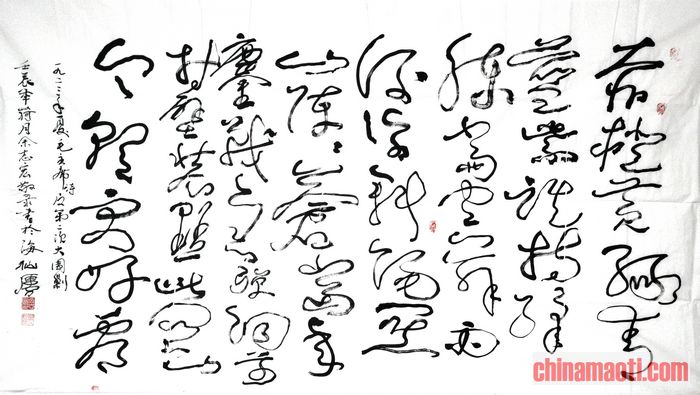 赤橙黄绿青
蓝紫谁持彩
练当空舞雨
后复斜阳关
山阵阵苍当年
鏖战急弹洞前
村壁装点此关山
今朝更好看
一九三三年夏
壬辰年 余志宏 书於海
chinamaoti.com